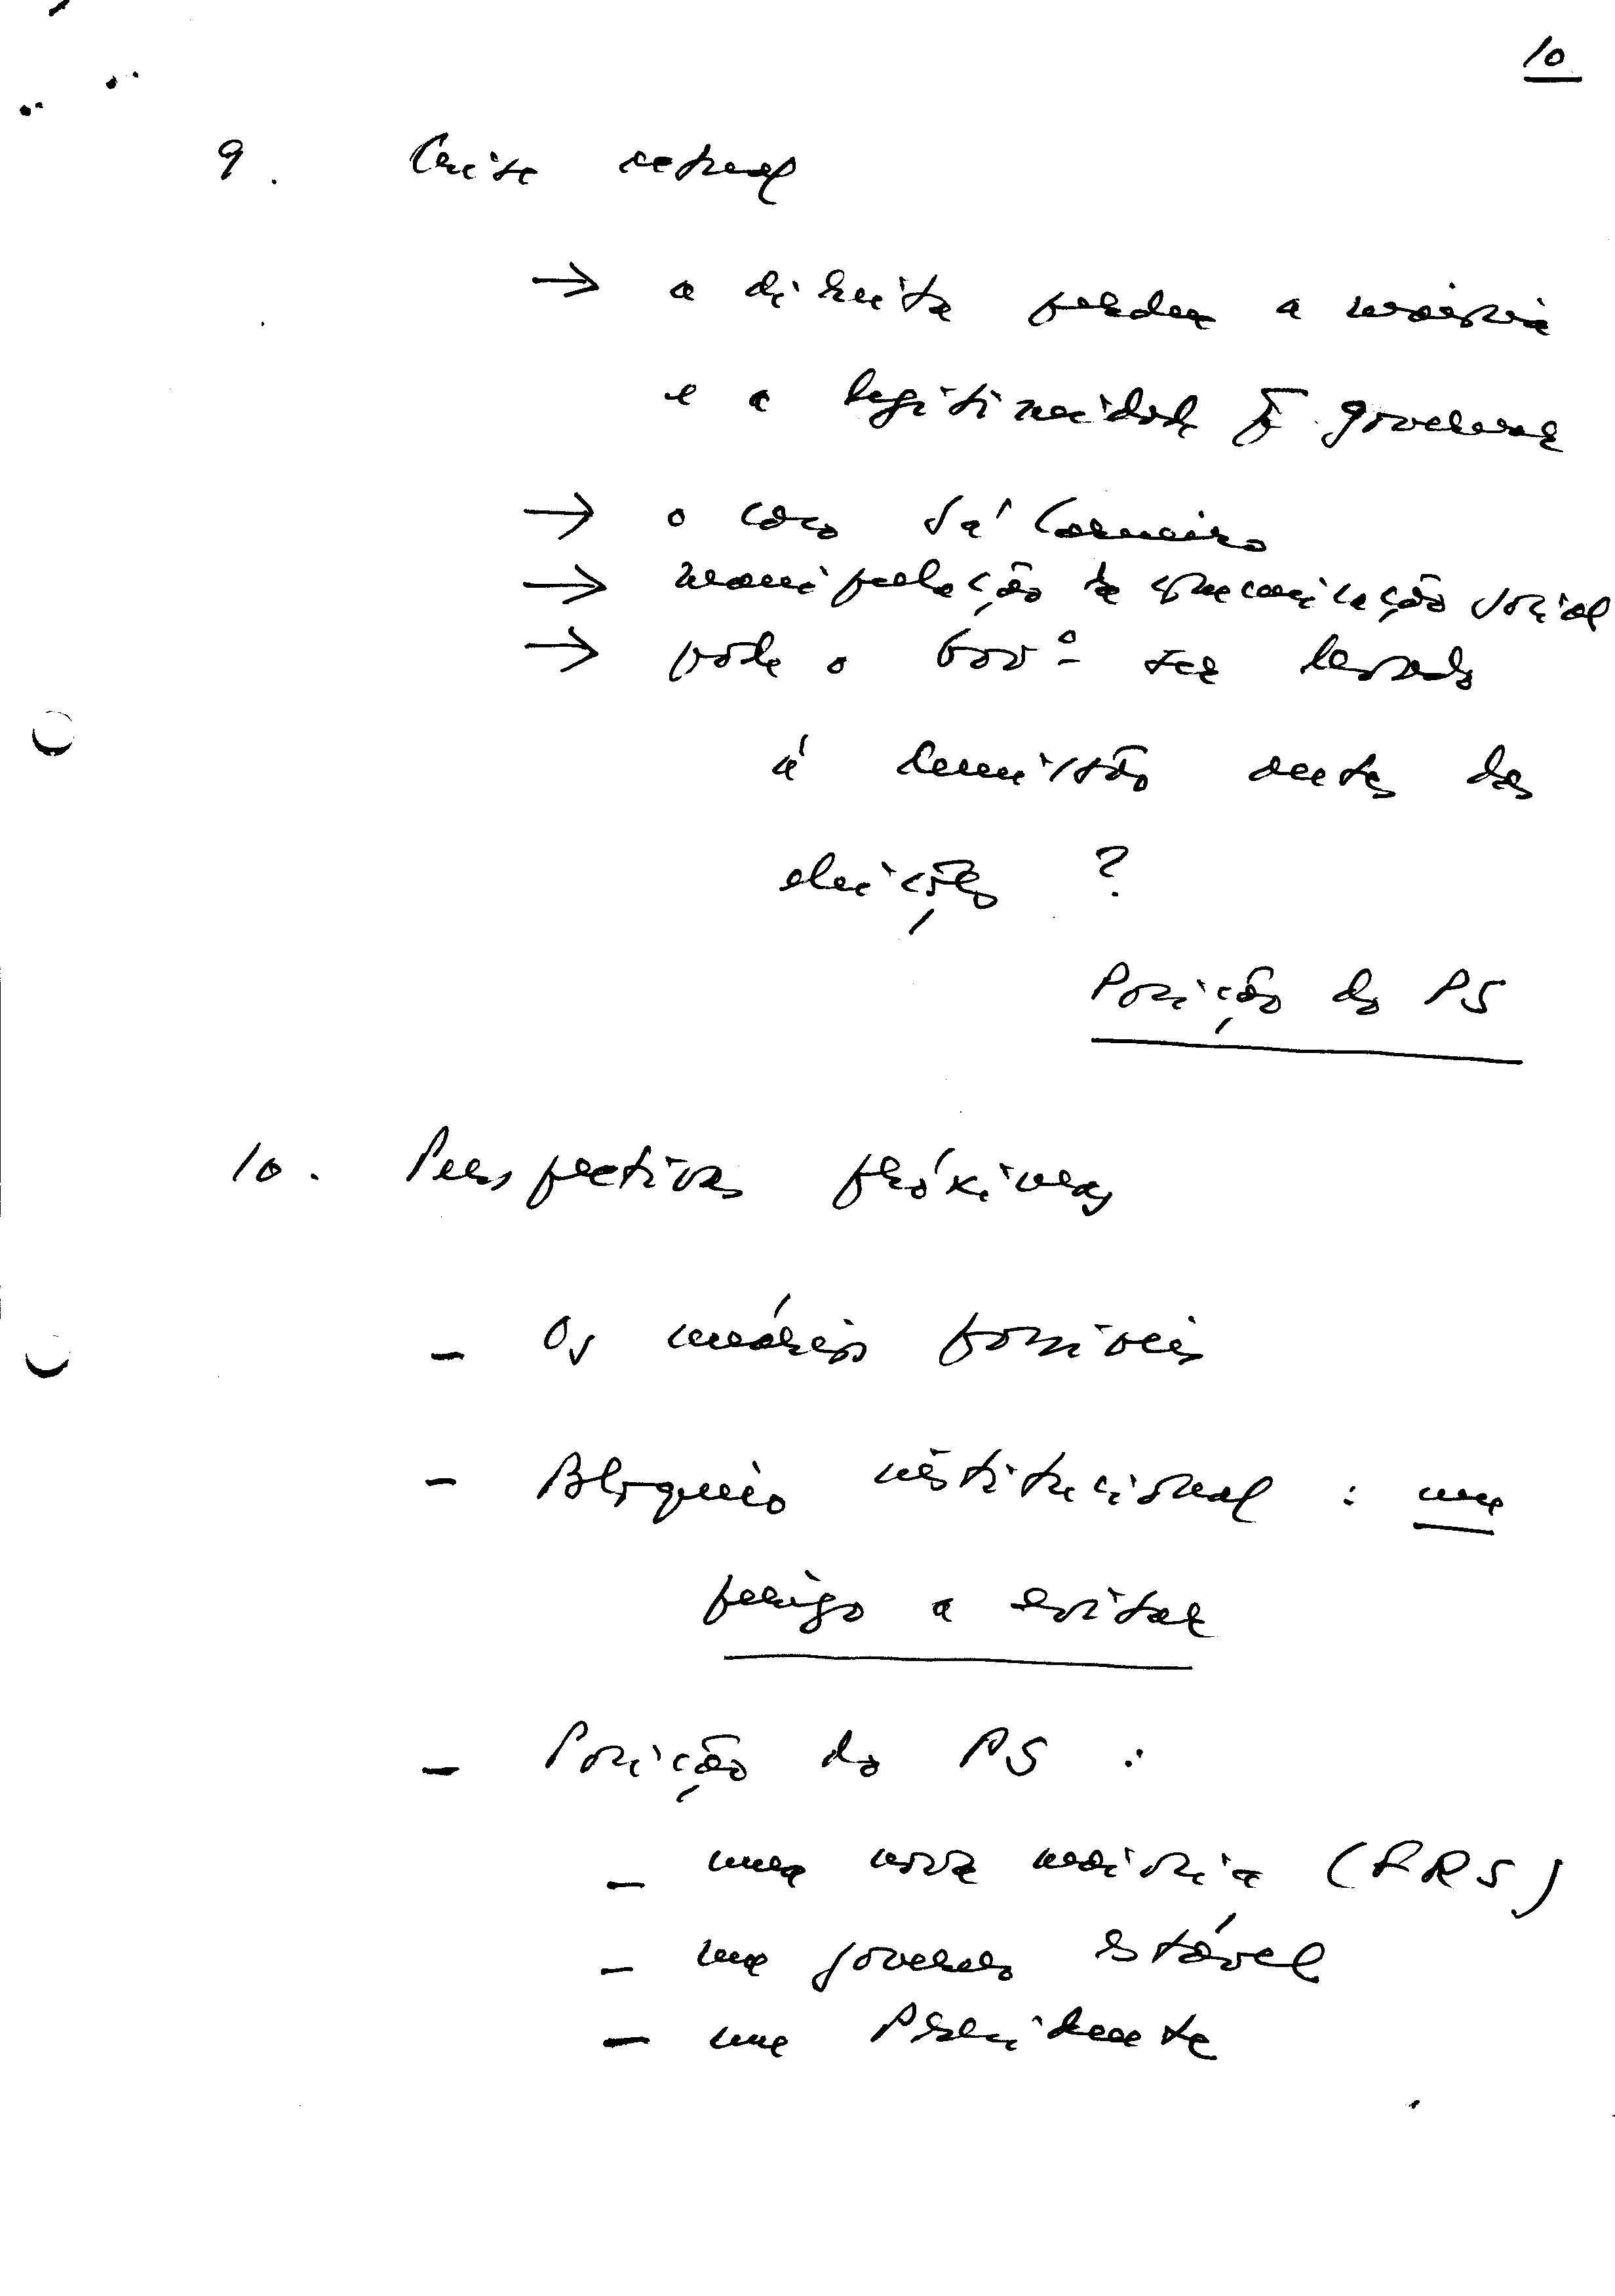 10
9. Crise actual
→ a direita perdeu a maioria
e a legitimidade p. governar
→ o caso Sá Carneiro
→ manipulação da comunicação social
→ pode o Govº ser levado
à demissão antes das
eleições ?
Posição do PS
10. Perspectivas próximas
- Os cenários possíveis
- Bloqueio institucional : um
perigo a evitar
- Posição do PS :
- uma nova maioria (FRS)
- um governo estável
- um Presidente